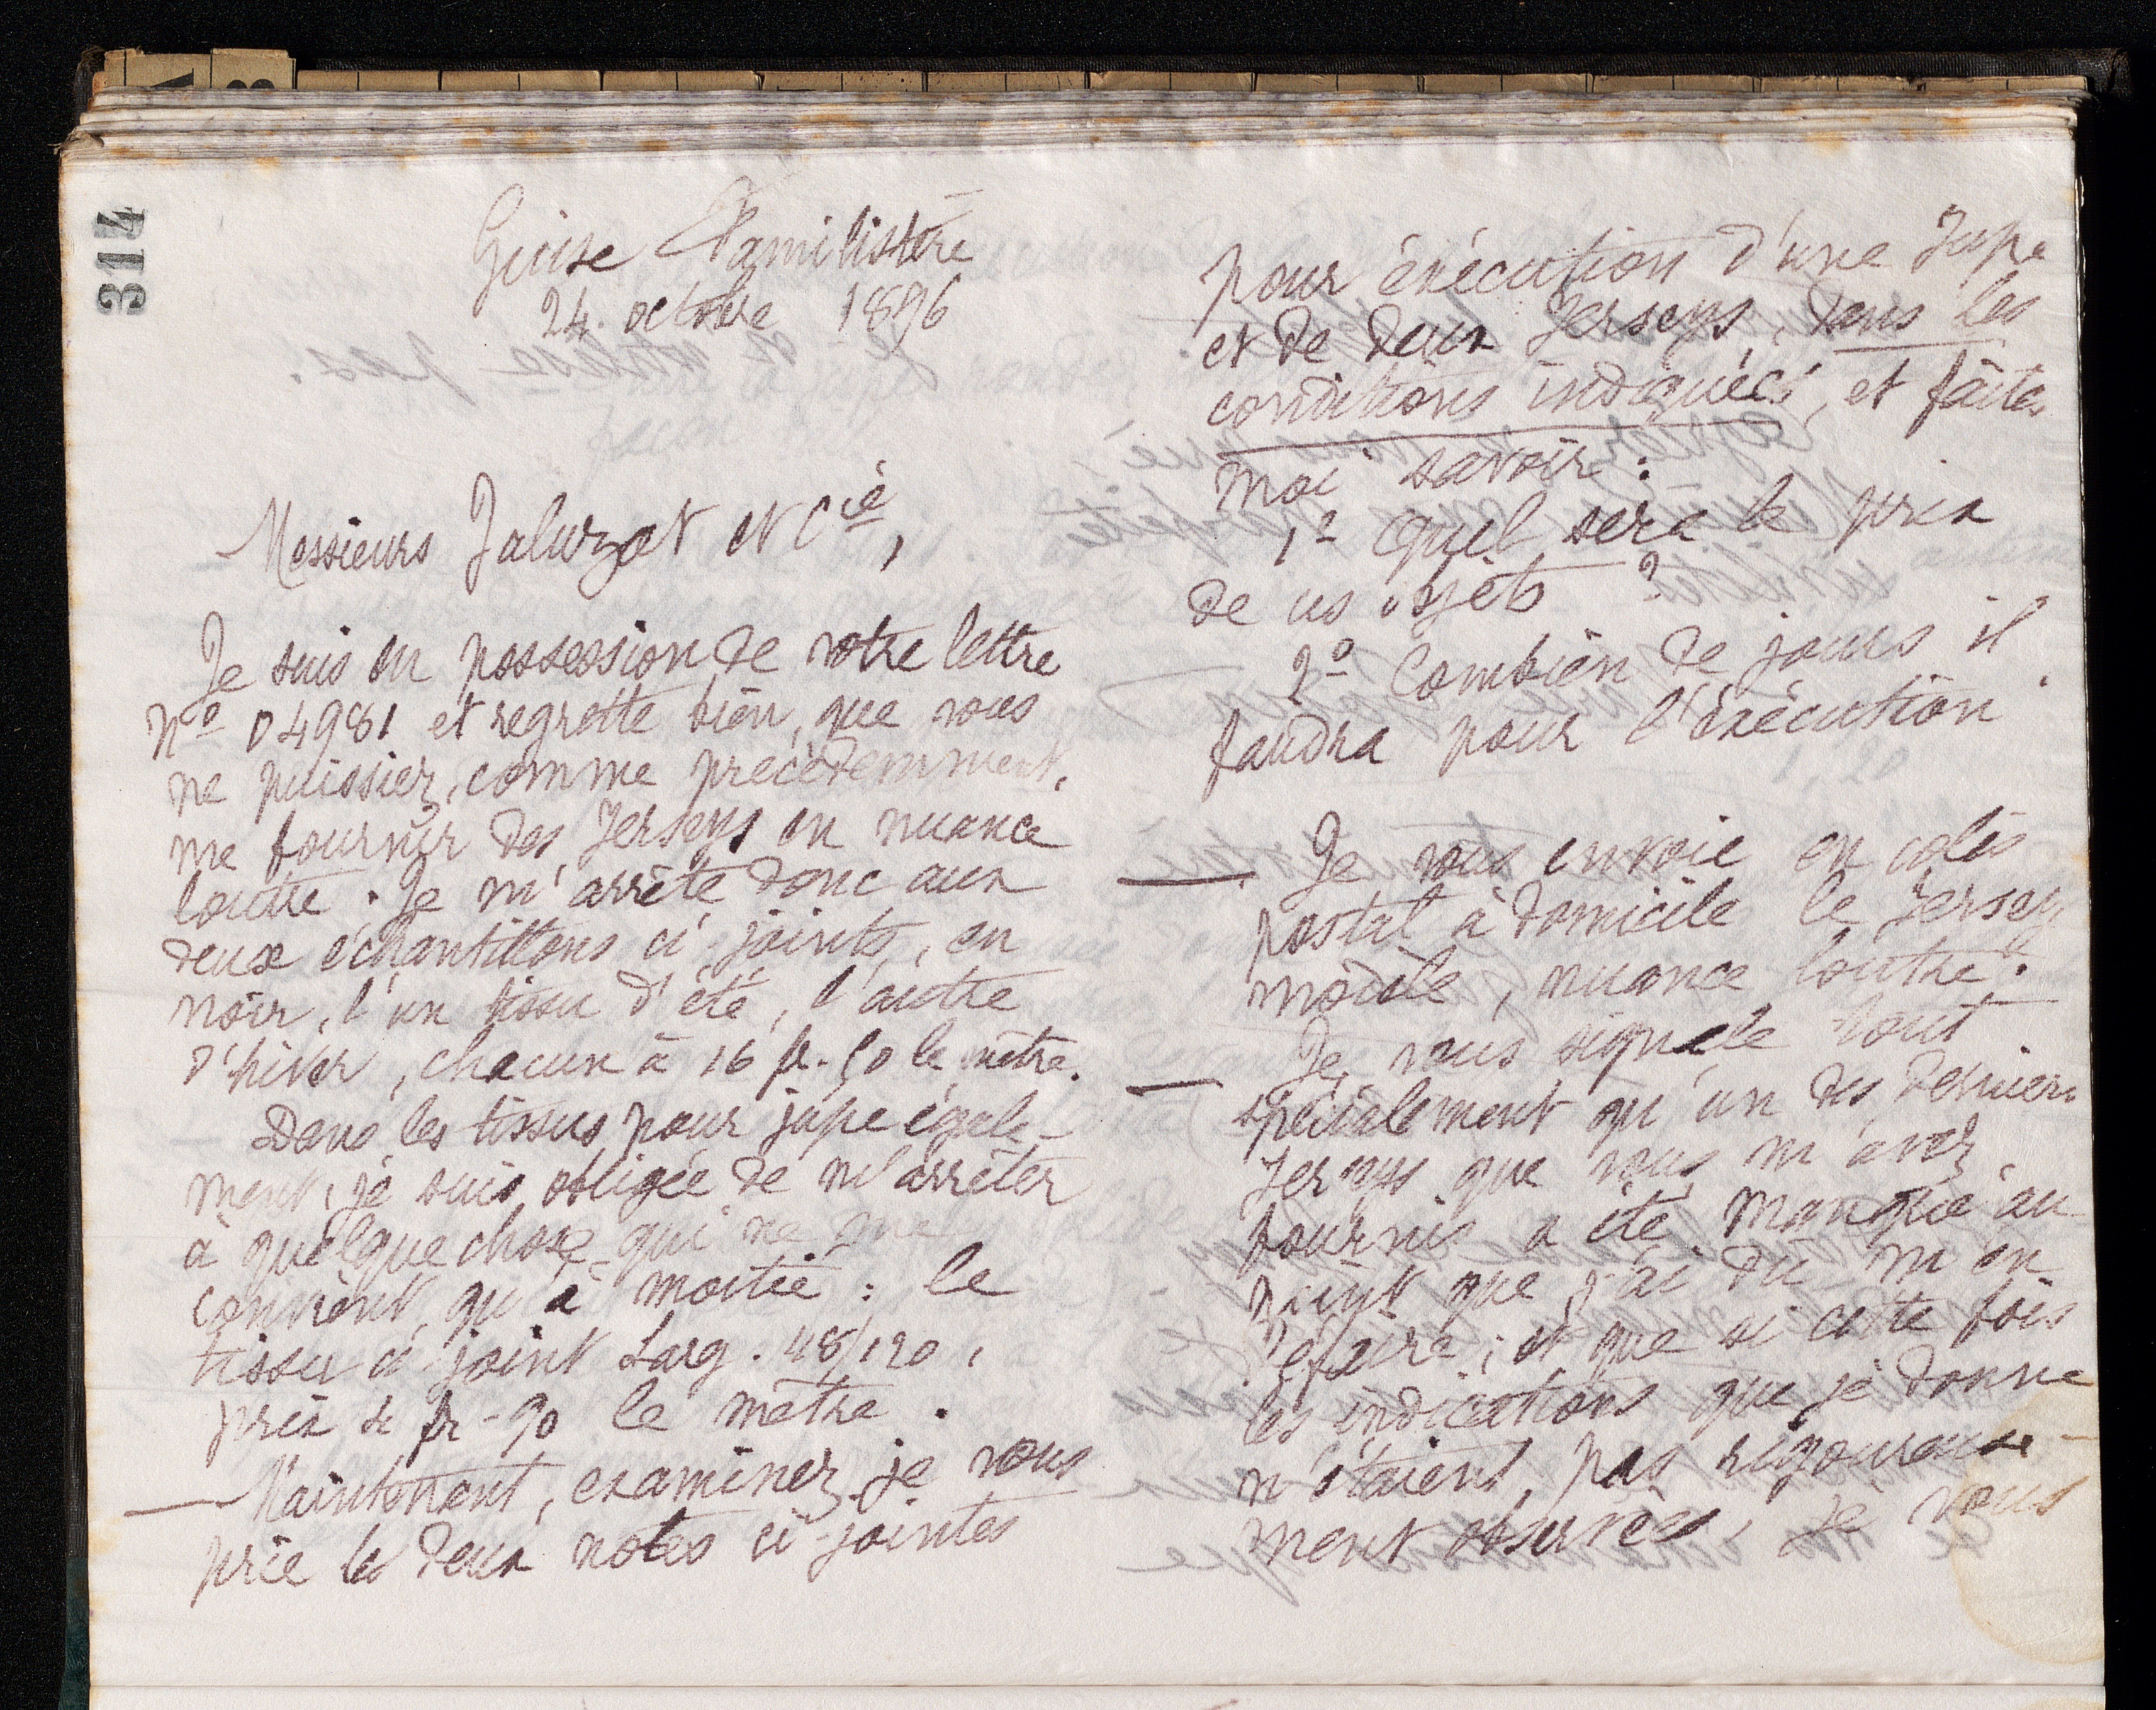 314
Guise Familistère
24 octobre 1896
Messieurs Jaluzot et Cie,
Je suis en possession de votre lettre
no 04981 et regrette bien, que vous
ne puissiez, comme précédemment,
me fournir des Jerseys en nuance
loutre. Je m'arrête donc aux
deux échantillons ci-joints, en
noir, l'un tissu d'été, l'autre
d'hiver, chacun à 16 fr. 50 le mètre.
Dans les tissus pour jupe égale-
ment, je suis obligée de m'arrêter
à quelque chose qui ne me
convient qu'à moitié : le
tissu ci-joint Larg. 48/120,
prix fr - 90 le mètre.
— Maintenant, examinez je vous
prie les deux notes ci-jointes
pour exécution d'une Jupe
et de deux Jerseys, dans les
conditions indiquées, et faites
moi savoir :
1o Quel sera le prix
de ces objets ?
2o Combien de jours il
faudra pour l'exécution
— Je vous envoie en colis
postal à domicile le Jersey,
modèle, nuance loutre.
— Je vous signale tout
spécialement qu'un des derniers
Jerseys que vous m'avez
fournis a été manqué au
point que j'ai dû m'en
défaire ; et que si cette fois
les indications que je donne
n'étaient pas rigoureuse-
ment observées, je vous